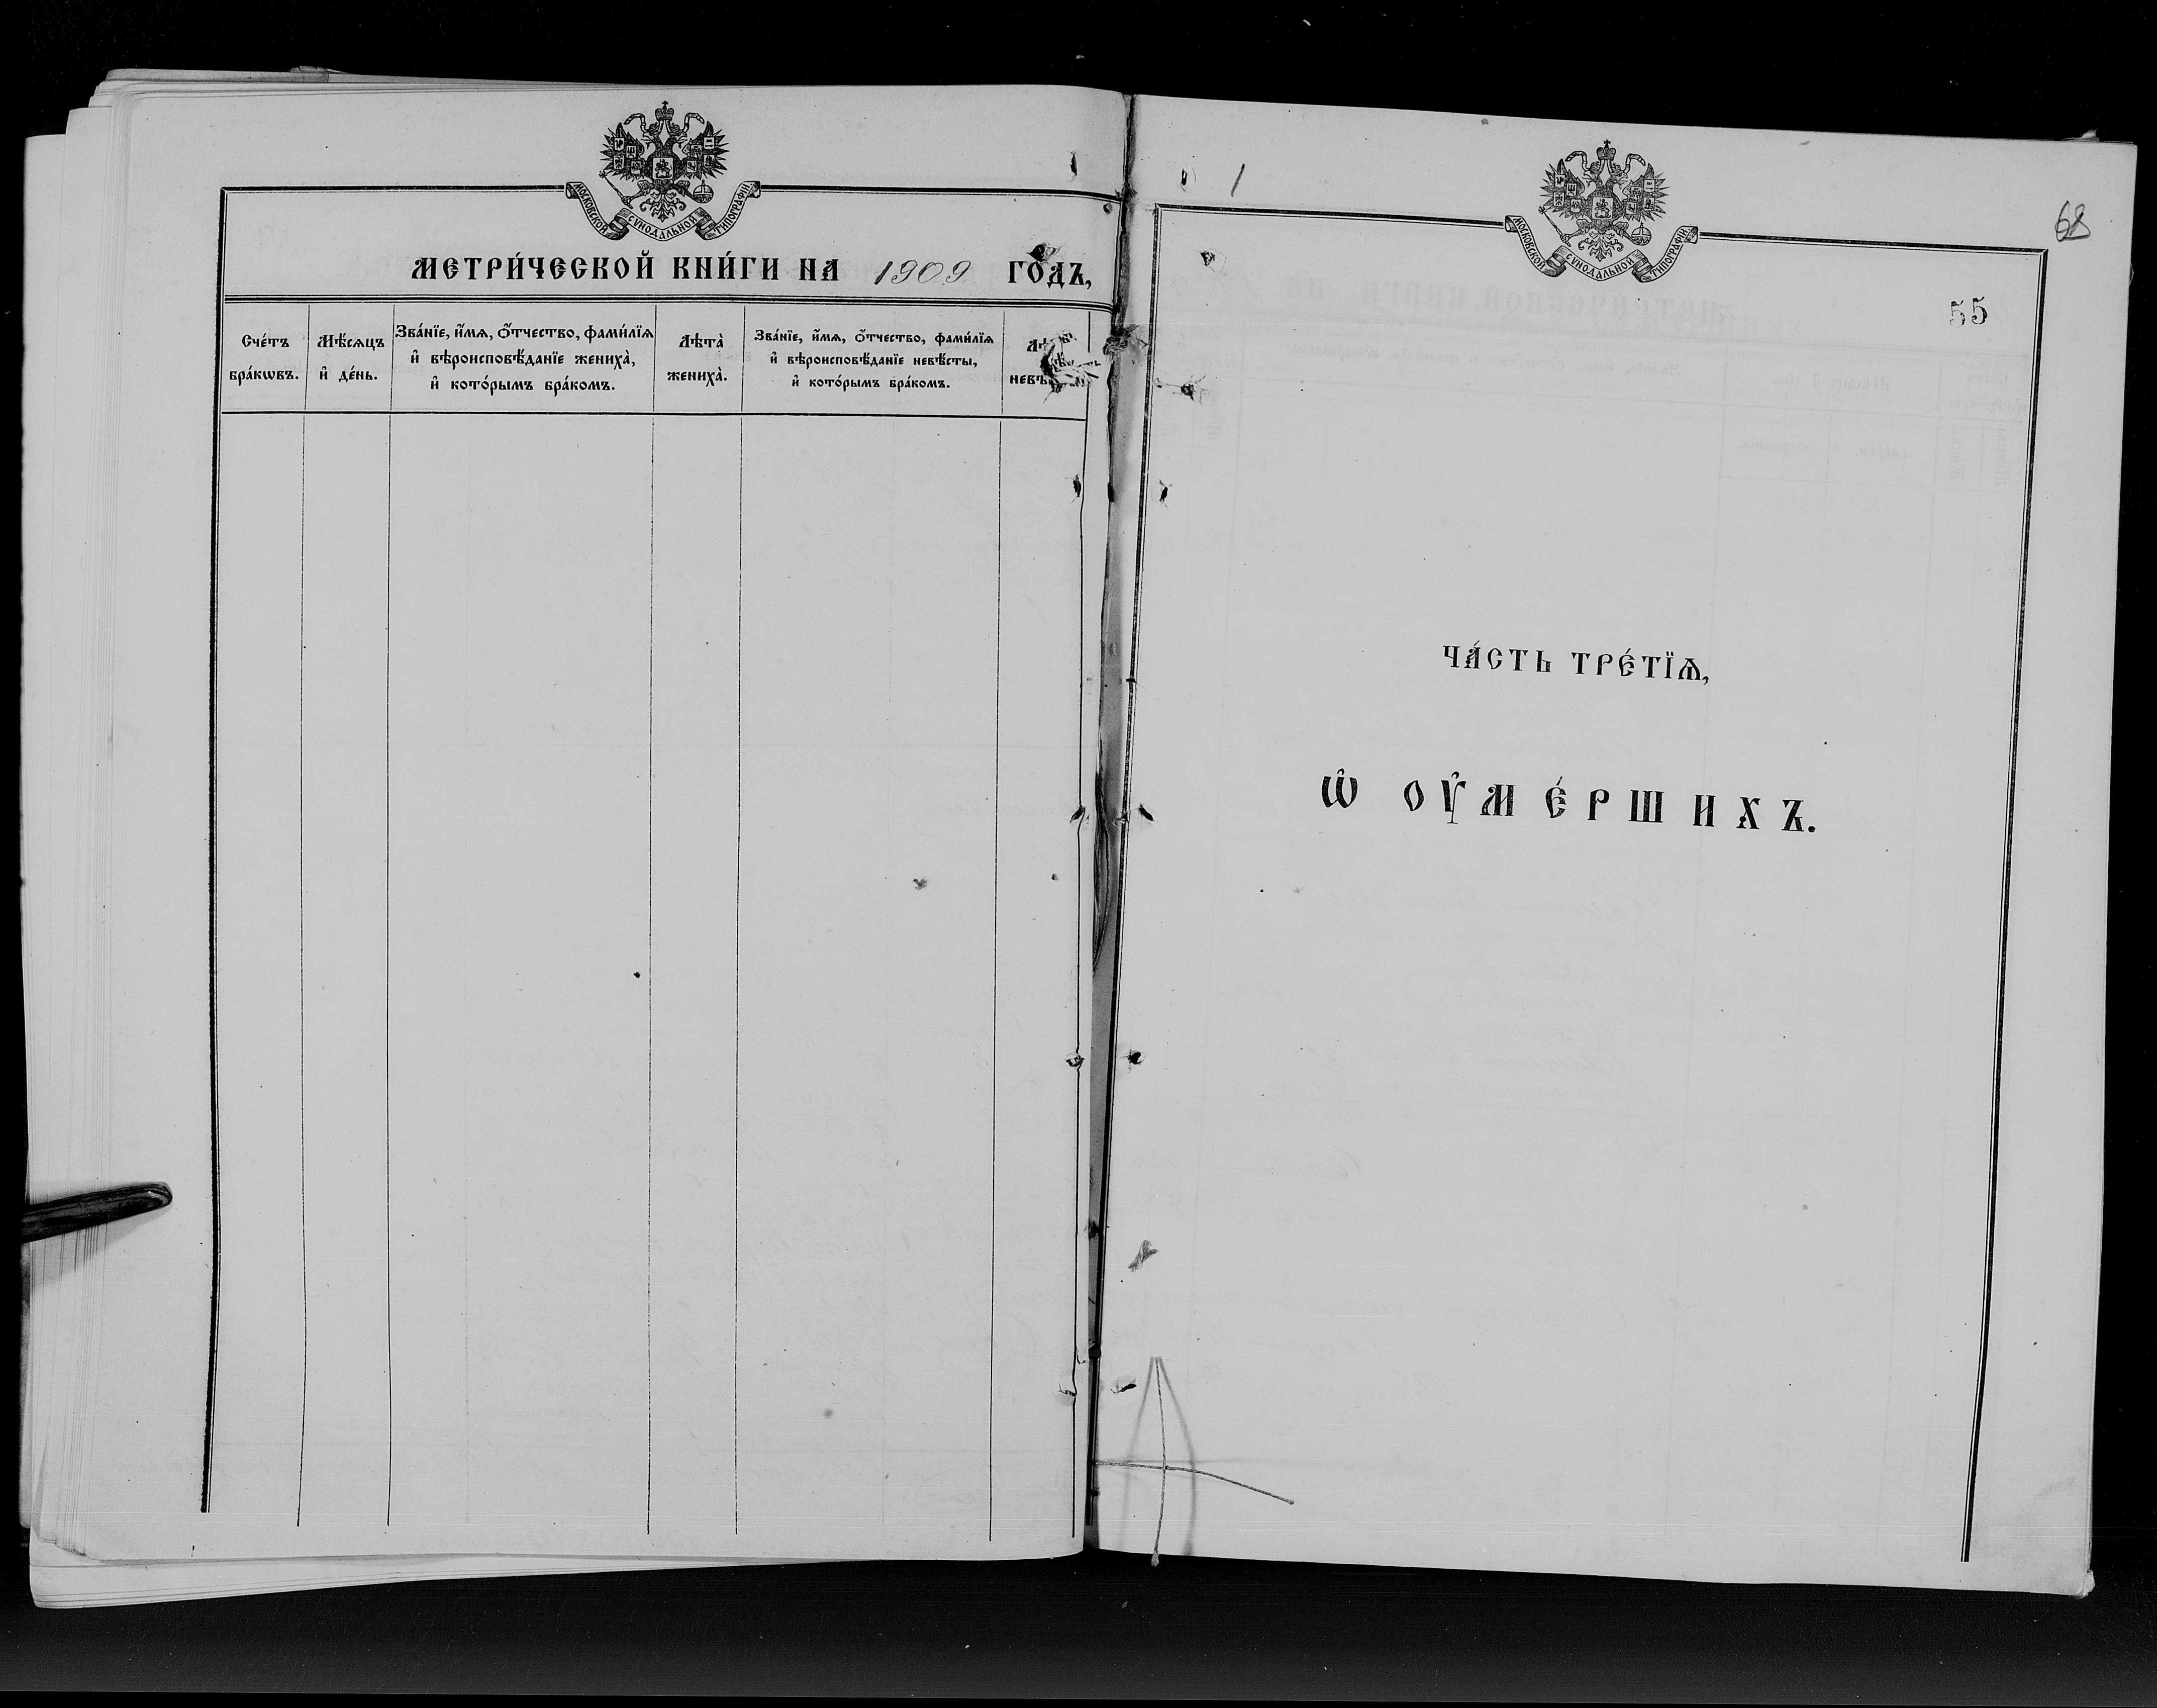 МОСКОВСКОЙ СѴНОДАЛЬНОЙ ТИПОГРАФІИ
МЕТРИ́ЧЕСКОЙ КНИ́ГИ НА 1909 ГО́ДЪ,
Сче́тъ
бра́кѡвъ.
Мѣ́сяцъ
и҆ де́нь.
Зва́нїе, и҆́мѧ, ѻ҆́тчество, фами́лїѧ
и҆ вѣроисповѣ́данїе жениха̀,
и҆ кото́рымъ бра́комъ.
Лѣта̀
жениха̀.
Зва́нїе, и҆́мѧ, ѻ҆́тчество, фами́лїѧ
и҆ вѣроисповѣ́данїе невѣ́сты,
и҆ кото́рымъ бра́комъ.
МОСКОВСКОЙ СѴНОДАЛЬНОЙ ТИПОГРАФІИ
68
55
ЧА́СТЬ ТРЕ́ТЇѦ,
Ѡ҆ ОУ҆МЕ́РШИХЪ.